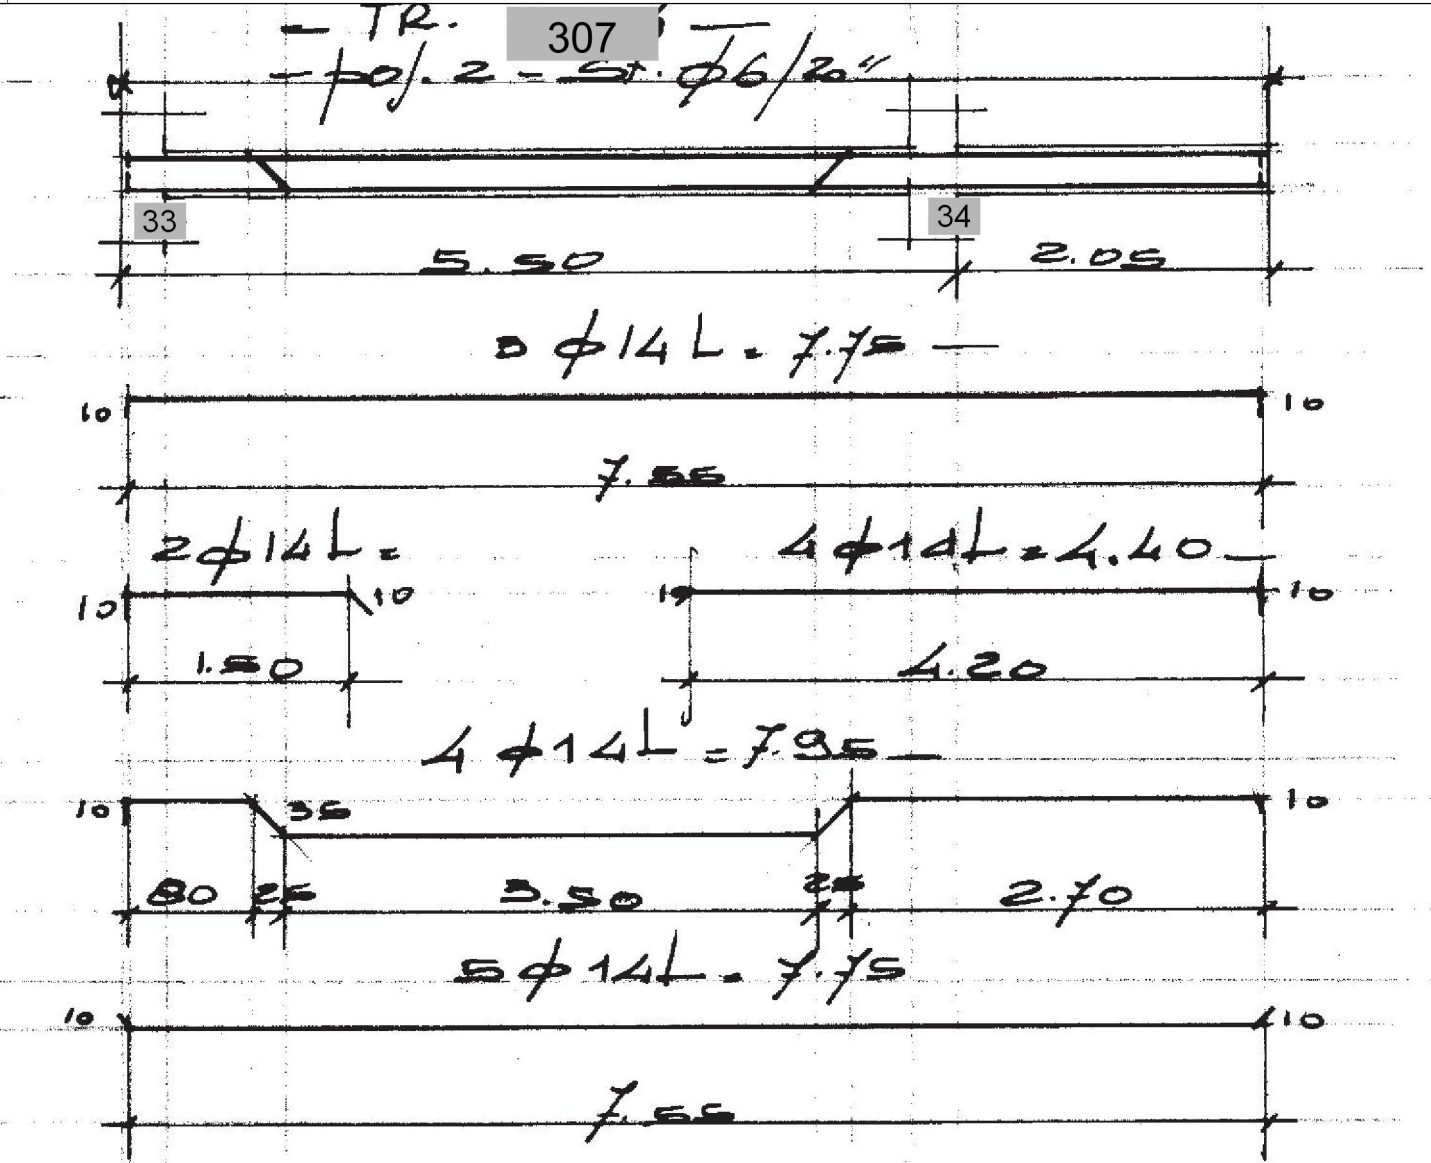 — TR. 307 —
- pol. 2 - St. ϕ6/20"
33 34
5.50 2.05
3 ϕ14 L = 7.75 —
10 10
7.55
2ϕ14L = 4ϕ14L = 4.40 —
10 10 10 10
1.50 4.20
4 ϕ14L = 7.95 —
10 35 10
80 25 3.50 25 2.70
5ϕ14L = 7.75
10 10
7.55